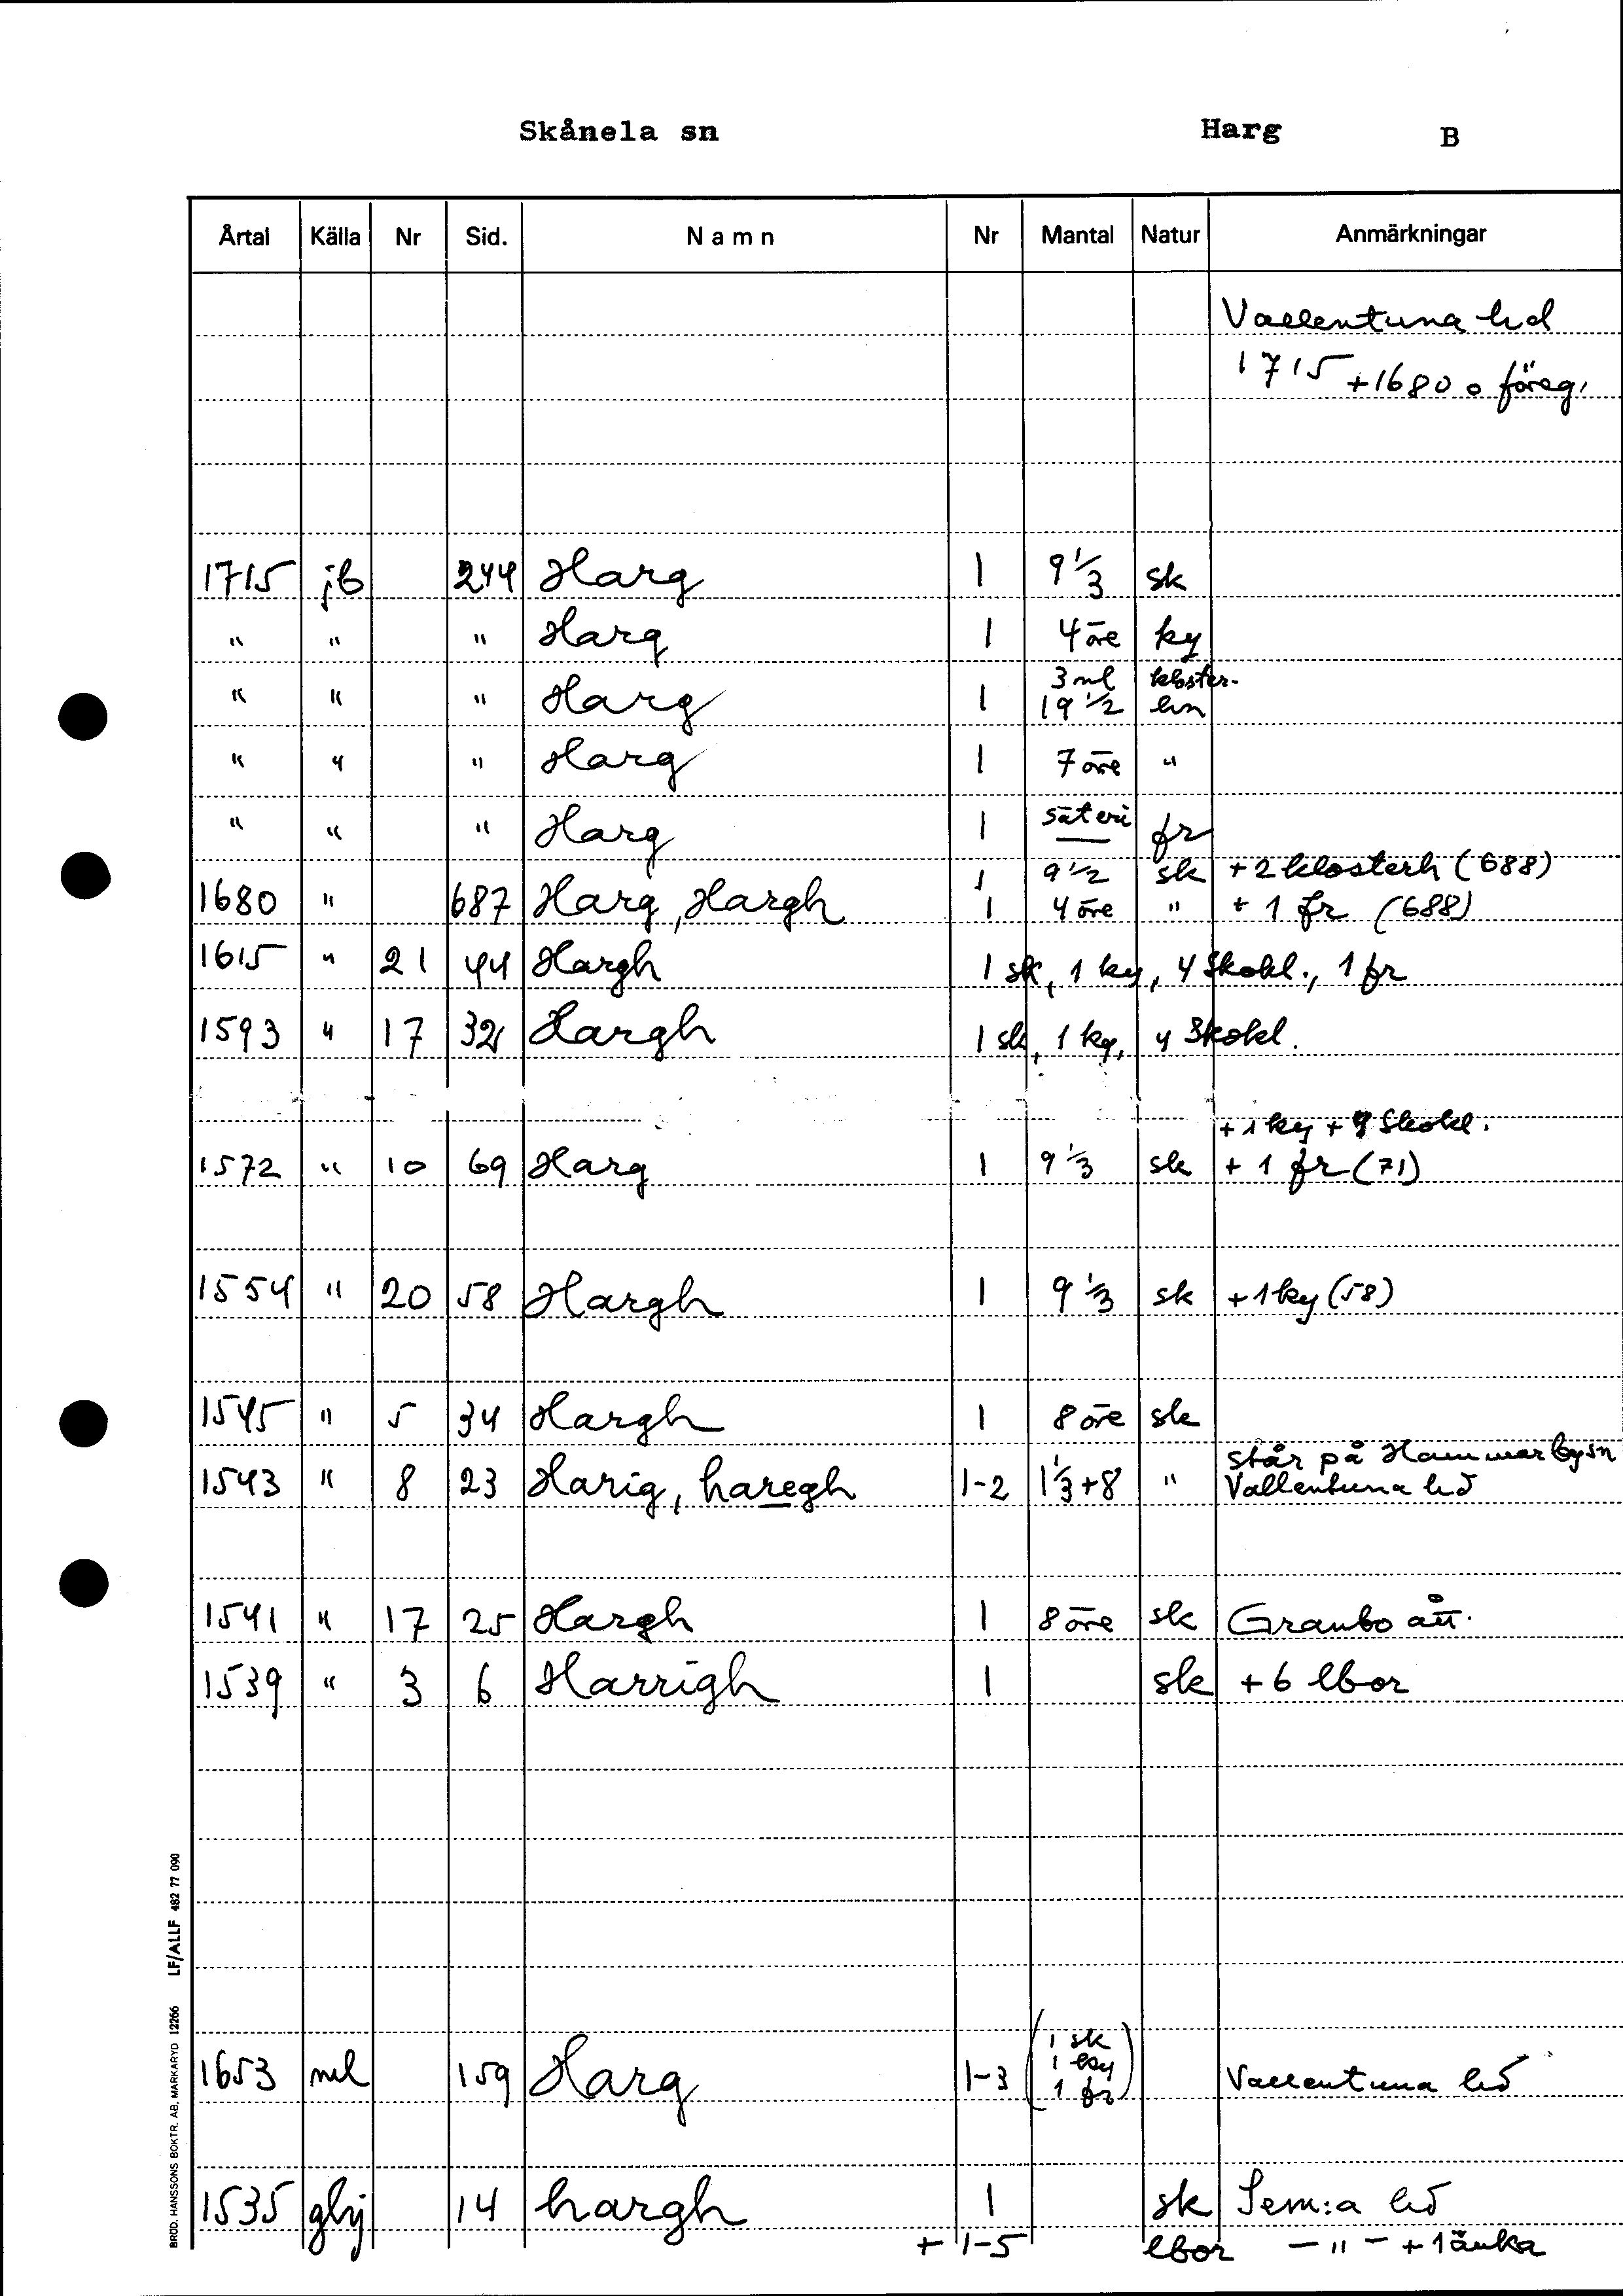 Skånela sn Harg B
Årtal Källa Nr Sid. Namn Nr Mantal Natur Anmärkningar
Vallentuna hd
1715 +1680 o föreg.
1715 jb 244 Harg 1 9 1/3 sk
" " " Harg 1 4 öre ky
" " " Harg 1 3 ml 19 1/2 kloster- hn
" " " Harg 1 7 öre "
" " " Harg 1 säteri fr
1 9 1/2 sk +2 klosterh (688)
1680 " 687 Harg, Hargh 1 4 öre " + 1 fr (688)
1615 " 21 44 Hargh 1 sk, 1 ky, 4 Skokl., 1 fr
1593 " 17 32 Hargh 1 sk, 1 ky, 4 Skokl.
+ 1 ky + Skokl.
1572 " 10 69 Harg 1 9 1/3 sk + 1 fr (71)
1554 " 20 58 Hargh 1 9 1/3 sk +1ky (58)
1545 " 5 34 Hargh 1 8 öre sk
står på Hammarby sn
1543 " 8 23 Harig, haregh 1-2 1 1/3+8 " Vallentuna hd
1541 " 17 25 Hargh 1 8 öre sk Granbo ått.
1539 " 3 6 Harrigh 1 sk + 6 lbor
1653 ml 159 Harg 1-3 (1 sk 1 ky 1 fr) Vallentuna hd
1535 ghj 14 hargh 1 sk Sem:a hd
+ 1-5 lbor - " - + 1 änka
BRÖD. HANSSONS BOKTR. AB, MARKARYD 12266 LF/ALLF 482 77 090